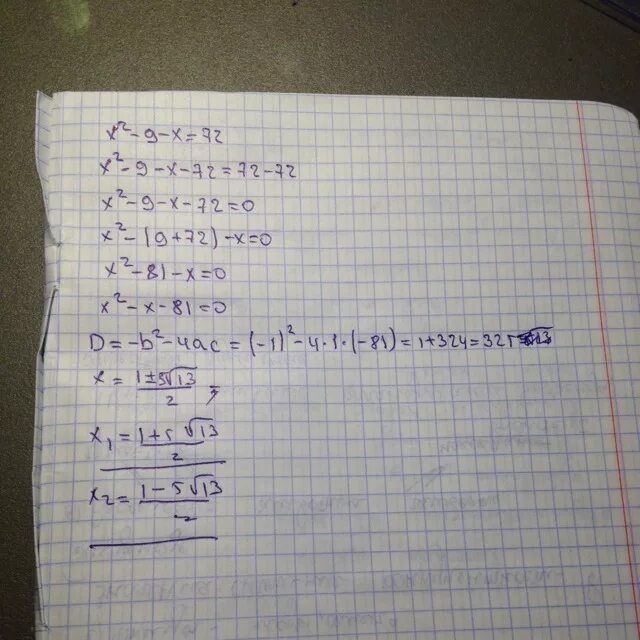 x²-9-x=72
x²-9-x-72=72-72
x²-9-x-72=0
x²-(9+72)-x=0
x²-81-x=0
x²-x-81=0
D=-b²-4ac=(-1)²-4·1·(-81)=1+324=325
x=(1±5√13)/2;
x₁=(1+5√13)/2
x₂=(1-5√13)/2